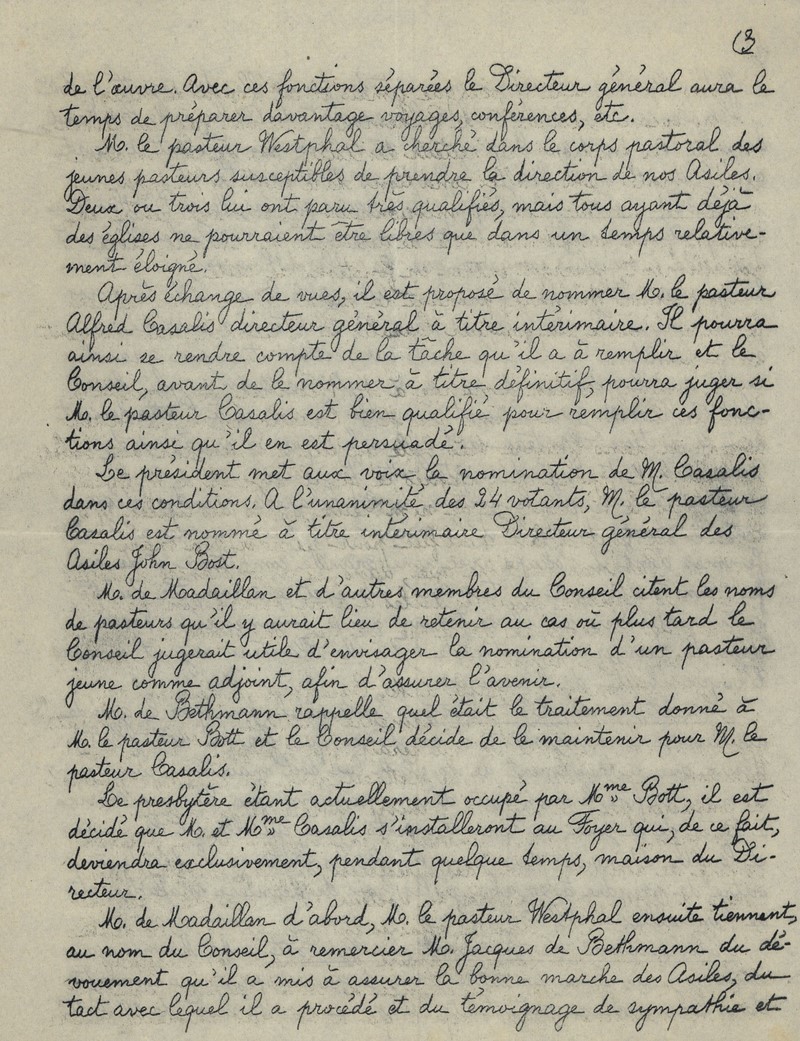 (3
de l'œuvre. Avec ces fonctions séparées le Directeur général aura le
temps de préparer davantage voyages, conférences, etc.
M. le pasteur Westphal a cherché dans le corps pastoral des
jeunes pasteurs susceptibles de prendre la direction de nos Asiles.
Deux ou trois lui ont paru très qualifiés, mais tous ayant déjà
des églises ne pourraient être libres que dans un temps relative-
ment éloigné.
Après échange de vues, il est proposé de nommer M. le pasteur
Alfred Casalis directeur général à titre intérimaire. Il pourra
ainsi se rendre compte de la tâche qu'il a à remplir et le
Conseil, avant de le nommer à titre définitif, pourra juger si
M. le pasteur Casalis est bien qualifié pour remplir ces fonc-
tions ainsi qu'il en est persuadé.
Le président met aux voix la nomination de M. Casalis
dans ces conditions. A l'unanimité des 24 votants, M. le pasteur
Casalis est nommé à titre intérimaire Directeur général des
Asiles John Bost.
M. de Madaillan et d'autres membres du Conseil citent les noms
de pasteurs qu'il y aurait lieu de retenir au cas où plus tard le
Conseil jugerait utile d'envisager la nomination d'un pasteur
jeune comme adjoint, afin d'assurer l'avenir.
M. de Bethmann rappelle quel était le traitement donné à
M. le pasteur Bott et le Conseil décide de le maintenir pour M. le
pasteur Casalis.
Le presbytère étant actuellement occupé par Mme Bott, il est
décidé que M. et Mme Casalis s'installeront au Foyer qui, de ce fait,
deviendra exclusivement, pendant quelque temps, maison du Di-
recteur.
M. de Madaillan d'abord, M. le pasteur Westphal ensuite tiennent,
au nom du Conseil, à remercier M. Jacques de Bethmann du dé-
vouement qu'il a mis à assurer la bonne marche des Asiles, du
tact avec lequel il a procédé et du témoignage de sympathie et